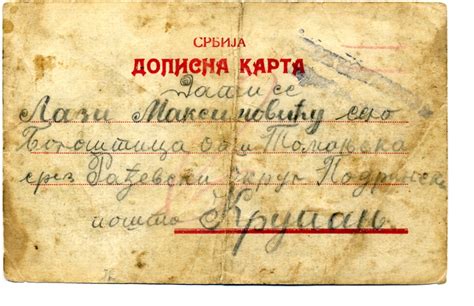 СРБИЈА
ДОПИСНА КАРТА
Дати се
Лази Максимовићу село
Богоштица
срез Рађевски округ Подрински
пошта Крупањ